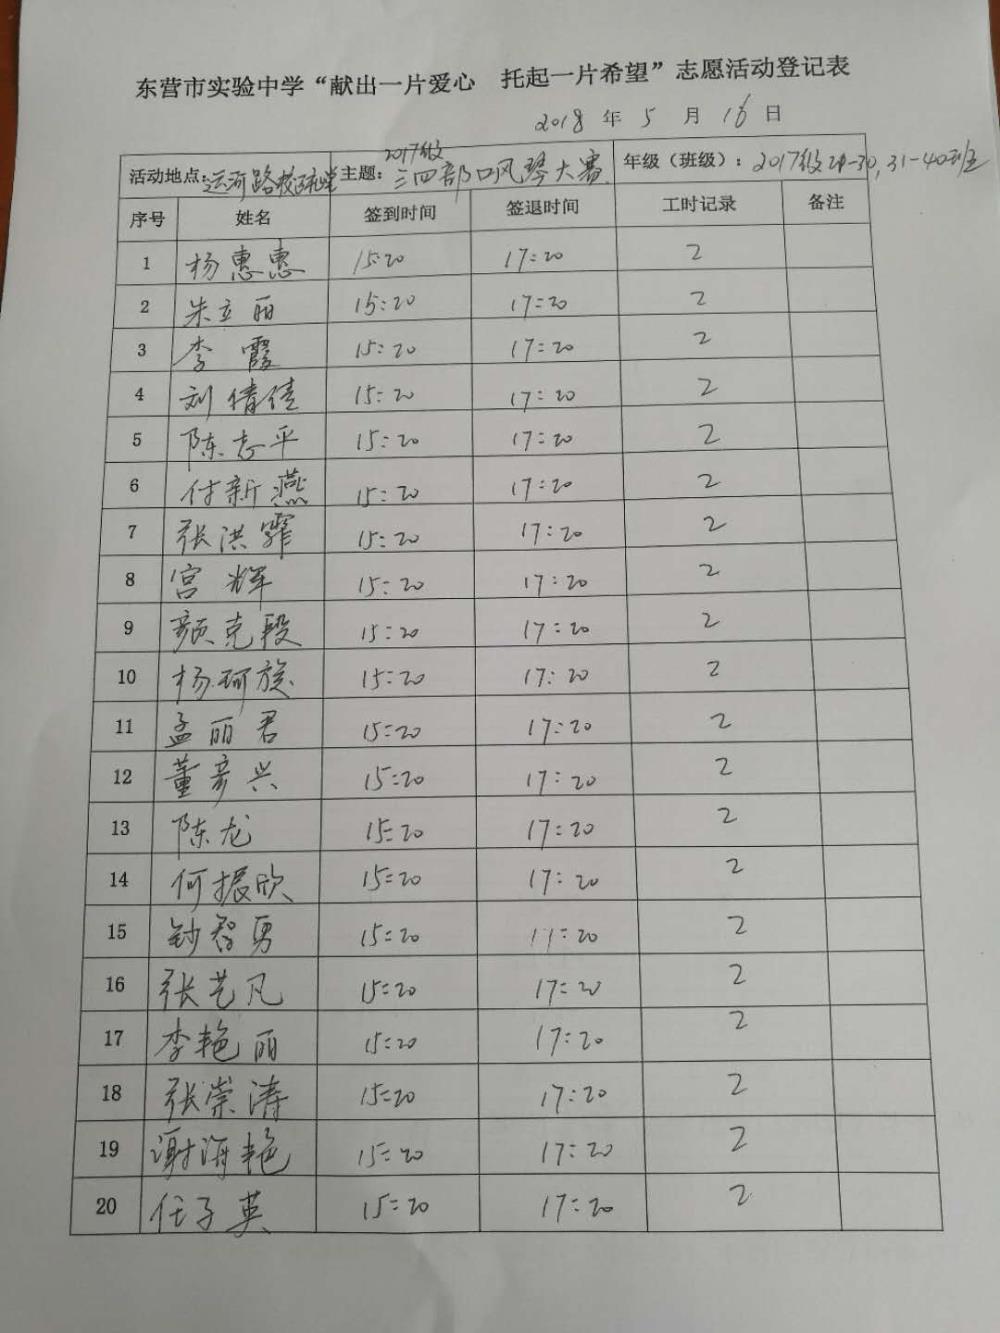 东营市实验中学“献出一片爱心 托起一片希望”志愿活动登记表
2018 年 5 月 16 日
2017级
活动地点:运河路校 主题:三四部口风琴大赛 年级（班级）:2017级21-30,31-40班
序号 姓名 签到时间 签退时间 工时记录 备注
1 杨惠惠 15:20 17:20 2
2 朱立丽 15:20 17:20 2
3 李霞 15:20 17:20 2
4 刘倩倩 15:20 17:20 2
5 陈志平 15:20 17:20 2
6 付新燕 15:20 17:20 2
7 张洪霏 15:20 17:20 2
8 宫辉 15:20 17:20 2
9 颜克段 15:20 17:20 2
10 杨珂旋 15:20 17:20 2
11 孟丽君 15:20 17:20 2
12 董彦兴 15:20 17:20 2
13 陈龙 15:20 17:20 2
14 何振欣 15:20 17:20 2
15 智勇 15:20 17:20 2
16 张艺凡 15:20 17:20 2
17 李艳丽 15:20 17:20 2
18 张崇涛 15:20 17:20 2
19 谢海艳 15:20 17:20 2
20 任子英 15:20 17:20 2